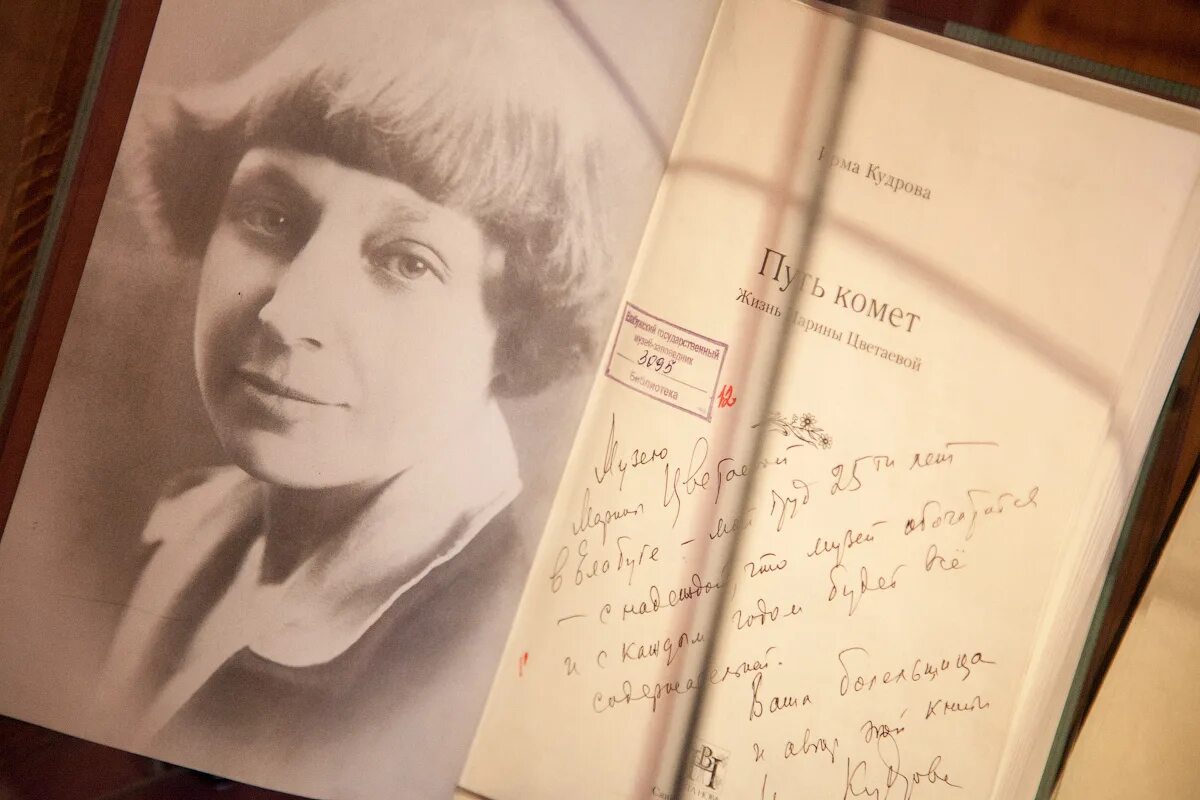 Ирма Кудрова
Путь комет
Жизнь Марины Цветаевой
Елабужский государственный
музей-заповедник
3095
Библиотека
12
Музею
Марины Цветаевой
в Елабуге – мой труд 25ти лет
– с надеждой, что музей обогатится
и с каждым годом будет всё
содержательней.
Ваша болельщица
и автор этой книги
И Кудрова